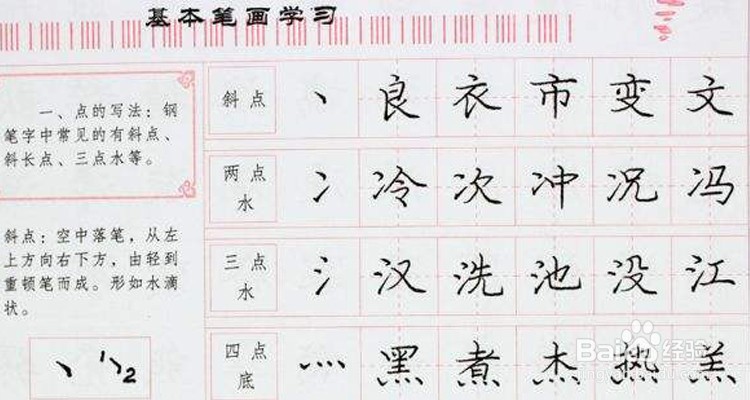 基本笔画学习
一、点的写法：钢
笔字中常见的有斜点、
斜长点、三点水等。
斜点：空中落笔，从左
上方向右下方，由轻到
重顿笔而成。形如水滴
状。
丶 1 2
斜点 丶 良 衣 市 变 文
两点水 冫 冷 次 冲 况 冯
三点水 氵 汉 洗 池 没 江
四点底 灬 黑 煮 杰 热 羔
Baidu经验